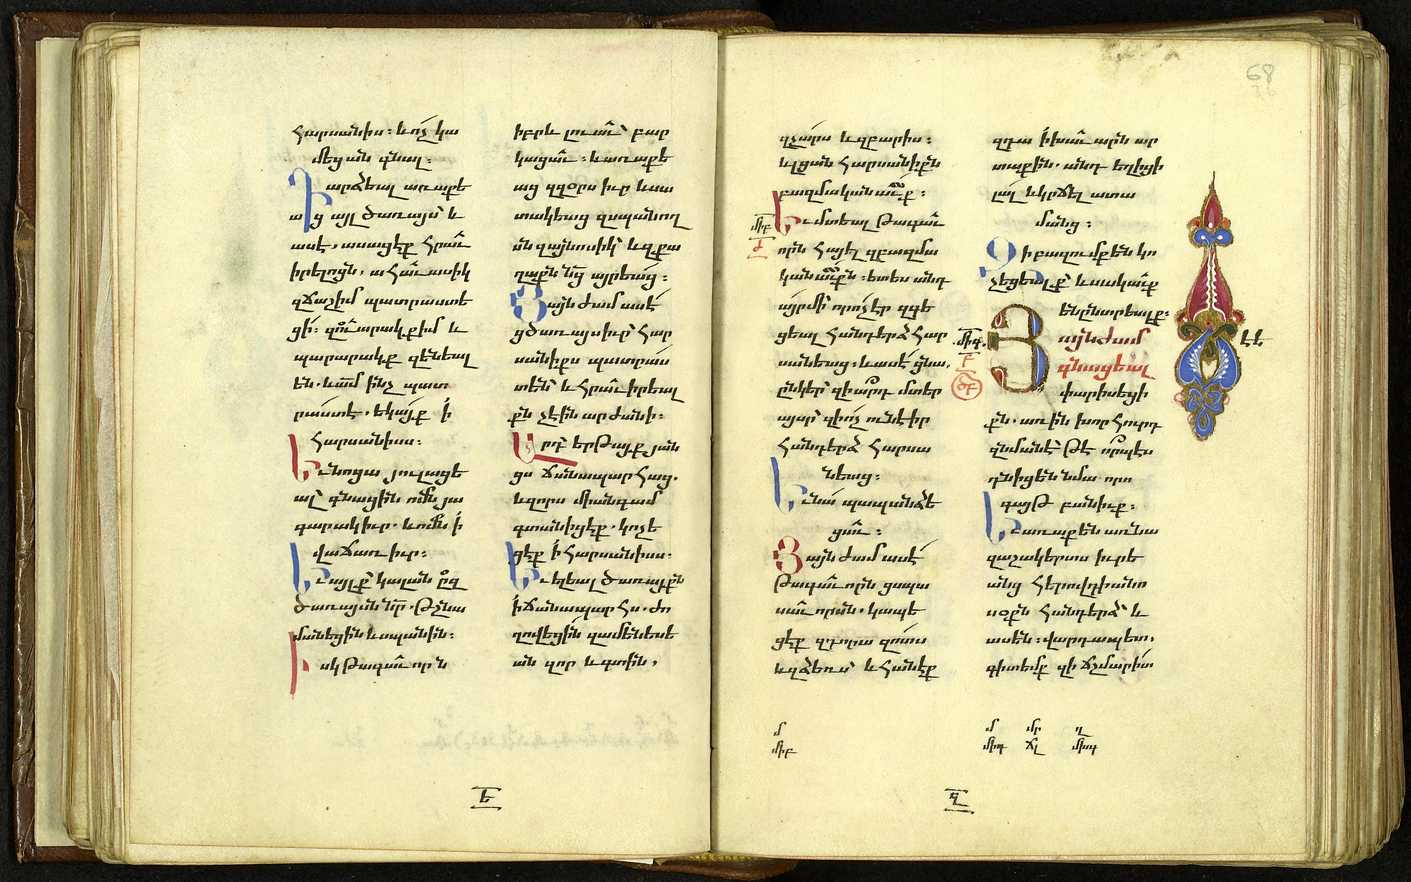 հարսանիս։ և ոչ կա
մեցան գնալ։
Դարձեալ առաքե
աց այլ ծառայս՝ և
ասէ, ասացէք հրաւ
իրելոցն, ահաւասիկ
զճաշիմ պատրաստե
ցի։ զուարակք իմ և
պարարակք զենեալ
են. և ամ ինչ պատ
րաստէ. եկայք ի
հարսանիսս։
Եւ նոցա յուլացե
ալ՝ գնացին ոմն յա
գարակ իւր. և ոմն ի
վաճառ իւր։
Եւ այլք կալան զ
ծառայսն նր. թշնա
մանեցին և սպանին։
Իսկ թագաւորն
իբրև լուաւ՝ բար
կացաւ։ և առաքե
աց զզօրս իւր և սա
տակեաց զսպանող
սն զայնոսիկ՝ և զքա
ղաքն նց այրեաց։
Յայնժամ ասէ
ցծառայս իւր՝ հար
սանիքս պատրաս
տեն՝ և հրաւիրեալ
քն չէին արժանի։
Արդ՝ երթայք յան
ցս ճանապարհաց.
և զորս միանգամ
գտանիցէք. կոչե
ցէք ի հարսանիսս.
Եւ ելեալ ծառայքն
ի ճանապարհս. ժո
ղովեցին զամենեսե
ան զոր և գտին,
Ե
68
զչարս և զբարիս։
և լցան հարսանիքն
բազմականաւք։
Եւ մտեալ թագաւ
որն հայել զբազմա
կանաւքն. ետես անդ
այր մի՝ որ ոչ էր զգե
ցեալ հանդերձ հար
սանեաց. և ասէ ցնա.
ընկեր՝ զիարդ մտեր
այսր՝ զի ոչ ունէիր
հանդերձ հարսա
նեաց։
Եւ նա պապանձե
ցաւ։
Յայնժամ ասէ
թագաւորն ցսպա
սաւորսն. կապե
ցէք զդորա զոտս
և զձեռս՝ և հանէք
զդա ի խաւարն ար
տաքին. անդ եղիցի
լալ և կրճել ատա
մանց։
Զի բազումք են կո
չեցեալք՝ և սակաւք
են ընտրեալք։
Յայնժամ
գնացեալ
փարիսեցի
քն. առին խորհուրդ
զնմանէ՝ թէ որպէս
դնիցեն նմա որո
գայթ բանիւք։
Եւ առաքեն առ նա
զաշակերտս իւրե
անց հերովդիանո
սօքն հանդերձ՝ և
ասեն։ վարդապետ,
գիտեմք զի ճշմարիտ
միբ
մ
միբ
մ մը ղ
միգ ճլ
Զ